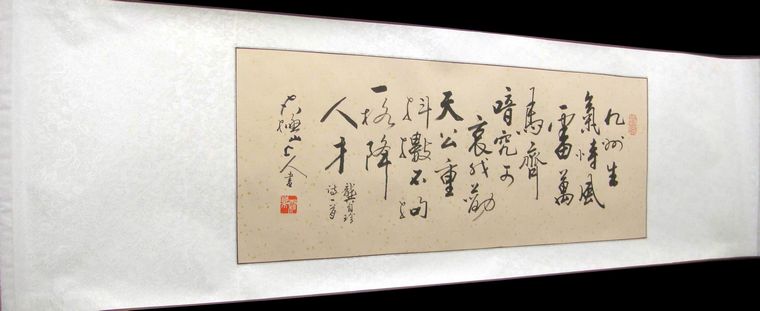 九州生
氣恃風
雷萬
馬齊
喑究可
哀我勸
天公重
抖擻不拘
一格降
人才
龔自珍
詩一首
山上人書